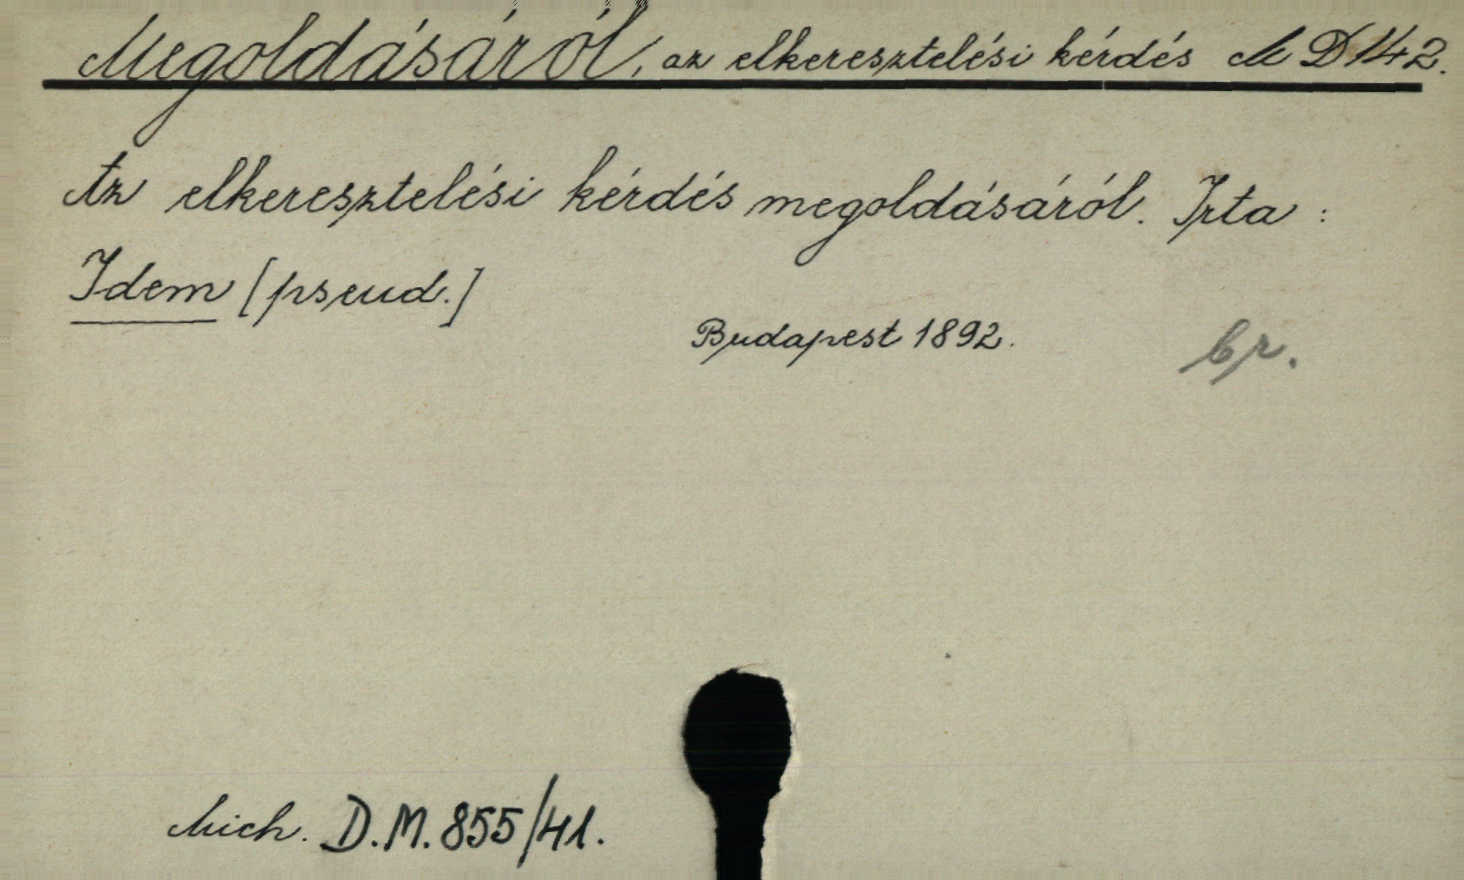 Megoldásáról, az elkeresztelési kérdés M D 142.
Az elkeresztelési kérdés megoldásáról. Irta :
Idem [pseud.]
Budapest 1892.
br.
Mich. D.M. 855/41.